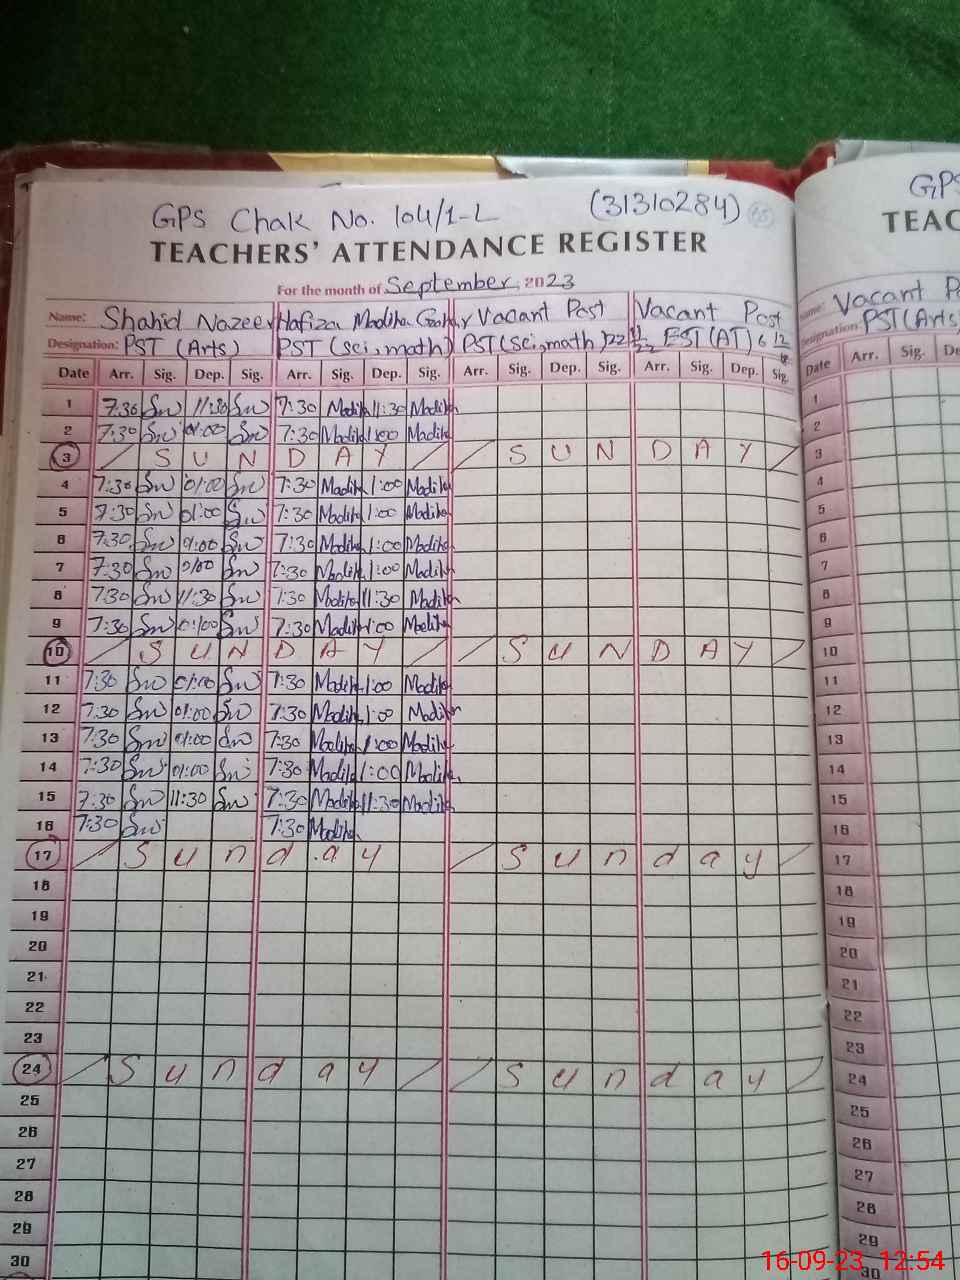 GPS Chak No. 104/1-L (31310284)
TEACHERS' ATTENDANCE REGISTER
For the month of September, 2023
Name: Shahid Nazeer Hafiza Madiha Vacant Post Vacant Post
Designation: PST (Arts) PST (Sci, math) PST (Sci, math) EST (AT)
Date Arr. Sig. Dep. Sig. Arr. Sig. Dep. Sig. Arr. Sig. Dep. Sig. Arr. Sig. Dep. Sig.
1 7:30 11:30 7:30 Madiha 11:30 Madiha
2 7:30 01:00 7:30 Madiha 1:00 Madiha
3 SUNDAY SUNDAY
4 7:30 01:00 7:30 Madiha 1:00 Madiha
5 7:30 01:00 7:30 Madiha 1:00 Madiha
6 7:30 01:00 7:30 Madiha 1:00 Madiha
7 7:30 01:00 7:30 Madiha 1:00 Madiha
8 7:30 11:30 7:30 Madiha 11:30 Madiha
9 7:30 01:00 7:30 Madiha 1:00 Madiha
10 SUNDAY SUNDAY
11 7:30 01:00 7:30 Madiha 1:00 Madiha
12 7:30 01:00 7:30 Madiha 1:00 Madiha
13 7:30 01:00 7:30 Madiha 1:00 Madiha
14 7:30 01:00 7:30 Madiha 1:00 Madiha
15 7:30 11:30 7:30 Madiha 11:30 Madiha
16 7:30 7:30 Madiha
17 Sunday Sunday
18
19
20
21
22
23
24 Sunday Sunday
25
26
27
28
29
30
GPS
TEAC
Name: Vacant
Designation: PST (Arts)
Date Arr. Sig. De
1
2
3
4
5
6
7
8
9
10
11
12
13
14
15
16
17
18
19
20
21
22
23
24
25
26
27
28
29
30
16-09-23 12:54